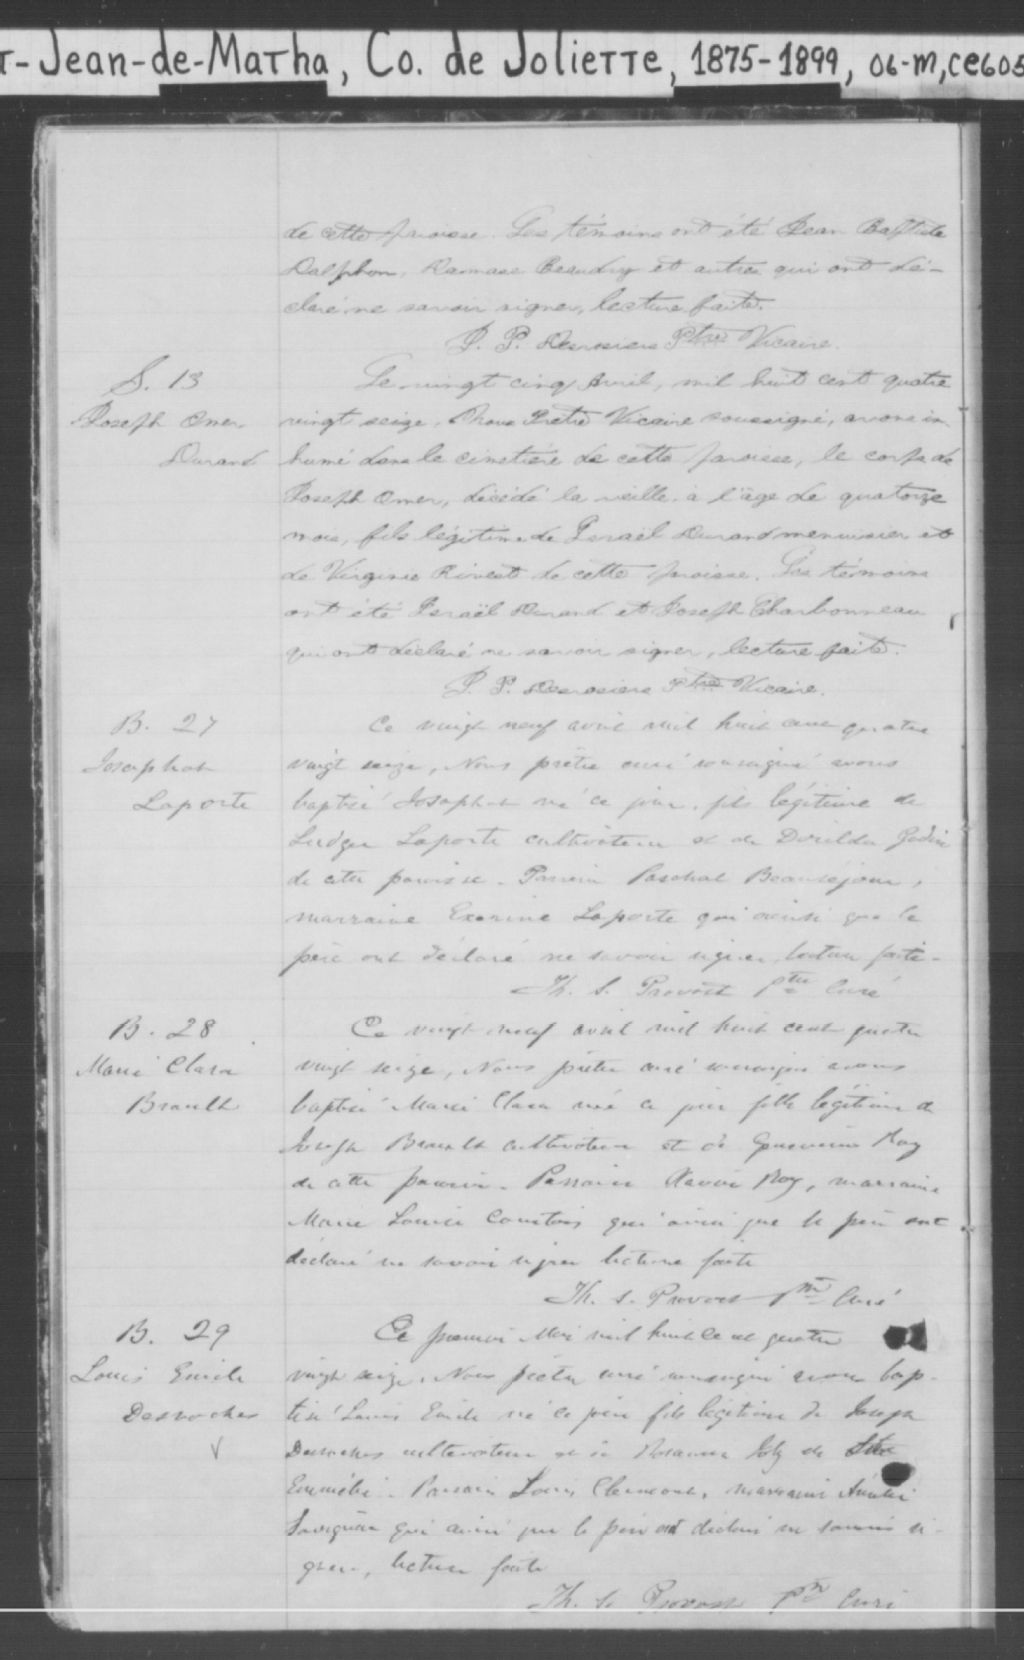 t-Jean-de-Matha, Co. de Joliette, 1875-1899, 06-m,ce605
de cette paroisse. Les témoins ont été Jean Baptiste
Dalphon, Damase Beaudry et autres qui ont dé-
claré ne savoir signer, lecture faite.
J. P. Desrosiers Ptre Vicaire.
S. 13
Joseph Omer
Durand
Le vingt cinq Avril, mil huit cent quatre
vingt seize, Nous Pretre Vicaire soussigné, avons in-
humé dans le cimetière de cette paroisse, le corps de
Joseph Omer, décédé la veille à l'âge de quatorze
mois, fils légitime de Israël Durand menuisier et
de Virginie Rivest de cette paroisse. Les témoins
ont été Israël Durand et Joseph Charbonneau
qui ont déclaré ne savoir signer, lecture faite.
J. P. Desrosiers Ptre Vicaire.
B. 27
Josaphat
Laporte
Ce vingt neuf avril mil huit cent quatre
vingt seize, Nous prêtre curé soussigné avons
baptisé Josaphat né ce jour, fils légitime de
Ludger Laporte cultivateur et de Dorilda Godin
de cette paroisse. Parrain Paschal Beauséjour,
marraine Exerine Laporte qui ainsi que le
père ont déclaré ne savoir signer, lecture faite.
Th. S. Provost Ptre Curé
B. 28
Marie Clara
Brault
Ce vingt neuf avril mil huit cent quatre
vingt seize, Nous prêtre curé soussigné avons
baptisé Marie Clara née ce jour fille légitime de
Joseph Brault cultivateur et de Roy
de cette paroisse. Parrain Xavier Roy, marraine
Marie Louise Courtois qui ainsi que le père ont
déclaré ne savoir signer lecture faite
Th. S. Provost Ptre Curé
B. 29
Louis Emile
Desroches
Ce premier Mai mil huit cent quatre
vingt seize, Nous prêtre curé soussigné avons bap-
tisé Louis Emile né ce jour fils légitime de Joseph
Desroches cultivateur et de Rosanna Joly de Ste
Emmélie. Parrain Louis Clermont, marraine Amélie
qui ainsi que le père ont déclaré ne savoir si-
gner, lecture faite
Th. S. Provost Ptre Curé